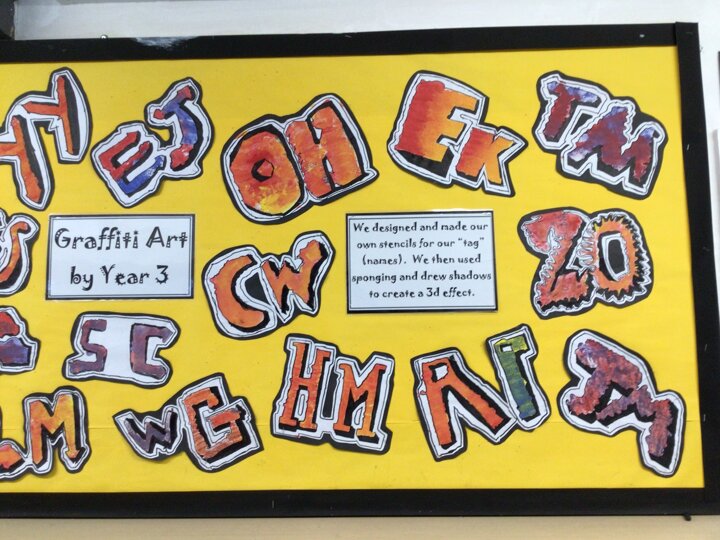 YY
EJ
OH
EK
TM
Graffiti Art
by Year 3
We designed and made our
own stencils for our "tag"
(names). We then used
sponging and drew shadows
to create a 3d effect.
CW
ZO
SC
HM
M
WG